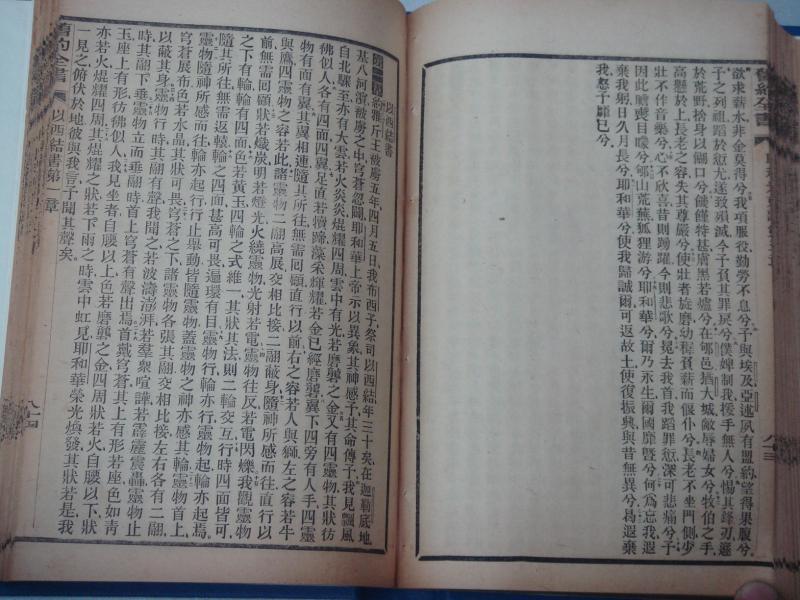 舊約全書
欲求薪水非金莫得兮我項服役勤勞不息兮予與埃及亞述夙有盟約望得果腹兮
予之列祖蹈於愆尤遂致殞滅今予負其罪戾兮僕婢制我援手無人兮惕其鋒刃遯
於荒野捨身以餬口兮饑饉特甚膚黑若爐兮在郇邑猶大城敵辱婦女兮牧伯之手
高懸於上長老之容失其尊嚴兮使壯者旋磨幼穉負薪而偃仆兮長老不坐門側少
壯不作音樂兮心不欣喜昔則踴躍今則悲歌兮冕去我首我蹈罪愆深可悲痛兮予
因此膽喪目矇兮郇山荒蕪狐狸游兮耶和華兮爾乃永生爾國靡曁兮何為忘我遐
棄我躬日久月長兮耶和華兮使我歸誠爾可返故土使復振興與昔無異兮曷遐棄
我怒予靡已兮
八十三
以西結書
約雅斤王被虜五年四月五日我布西子祭司以西結年三十矣在迦勒底地
基八河濱被虜之中穹蒼忽闢耶和華上帝示以異象其神感予其命傳予我見飄風
自北驟至亦有大雲若火炎炎焜耀四周雲中有光若磨礱之金又有四靈物其狀彷
彿似人各有四面四翼足直若犢蹄藻采輝耀若金已經磨礱翼下四旁有人手四靈
物有面有翼其翼相連隨其所往無需回顧直行以前右之容若人與獅左之容若牛
與鷹四靈物之容若此諸靈物二翮高展交相比接二翮蔽身隨神所感而往直行以
前無需回顧狀若熾炭明若燈光火繞靈物光射若電靈物往反若電閃爍我觀靈物
之下有輪輪有四面色若黃玉四輪之式維一其狀其法則二輪交互行時四面皆可
隨其所往無需返轅輪之四面甚高可畏遍環有目靈物行輪亦行靈物起輪亦起焉
靈物隨神所感而往輪亦起行行止舉動皆隨靈物蓋靈物之神亦感其輪靈物首上
穹蒼展布色若水晶其狀可畏穹蒼之下諸靈物各張其翮交相比接左右各有二翮
以蔽其身靈物行時其翮有聲我聞之若波濤澎湃若羣衆喧譁若霹靂震轟靈物止
時其翮下垂靈物立而垂翮時首上穹蒼有聲出焉首戴穹蒼其上有形若座色如青
玉座上有形彷彿似人我見坐者自腰以上色若磨礱之金四周狀若火自腰以下狀
亦若火焜耀四周其焜耀之狀若下雨之時雲中虹見耶和華榮光煥發其狀若是我
一見之俯伏於地彼與我言予聞其聲矣
舊約全書
以西結書第一章
八十四